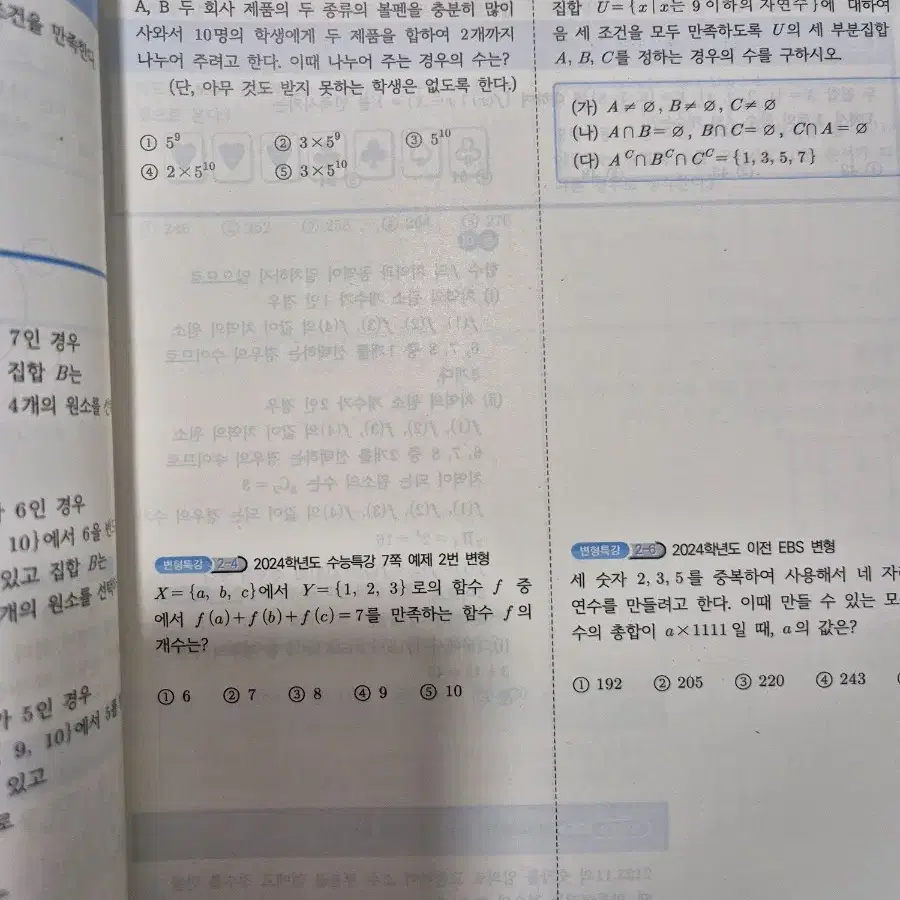 조건을 만족한다
7인 경우
집합 B는
4개의 원소를
6인 경우
10}에서 6을
있고 집합 B는
개의 원소를
5인 경우
9, 10}에서 5를
있고
로
A, B 두 회사 제품의 두 종류의 볼펜을 충분히 많이
사와서 10명의 학생에게 두 제품을 합하여 2개까지
나누어 주려고 한다. 이때 나누어 주는 경우의 수는?
(단, 아무 것도 받지 못하는 학생은 없도록 한다.)
① 5⁹ ② 3×5⁹ ③ 5¹⁰
④ 2×5¹⁰ ⑤ 3×5¹⁰
변형특강 2-4 2024학년도 수능특강 7쪽 예제 2번 변형
X={a, b, c}에서 Y={1, 2, 3}로의 함수 f 중
에서 f(a)+f(b)+f(c)=7를 만족하는 함수 f의
개수는?
① 6 ② 7 ③ 8 ④ 9 ⑤ 10
집합 U={x|x는 9 이하의 자연수}에 대하여
음 세 조건을 모두 만족하도록 U의 세 부분집합
A, B, C를 정하는 경우의 수를 구하시오.
(가) A≠∅, B≠∅, C≠∅
(나) A∩B=∅, B∩C=∅, C∩A=∅
(다) Aᶜ∩Bᶜ∩Cᶜ={1, 3, 5, 7}
변형특강 2-6 2024학년도 이전 EBS 변형
세 숫자 2, 3, 5를 중복하여 사용해서 네 자리
연수를 만들려고 한다. 이때 만들 수 있는 모
수의 총합이 a×1111일 때, a의 값은?
① 192 ② 205 ③ 220 ④ 243